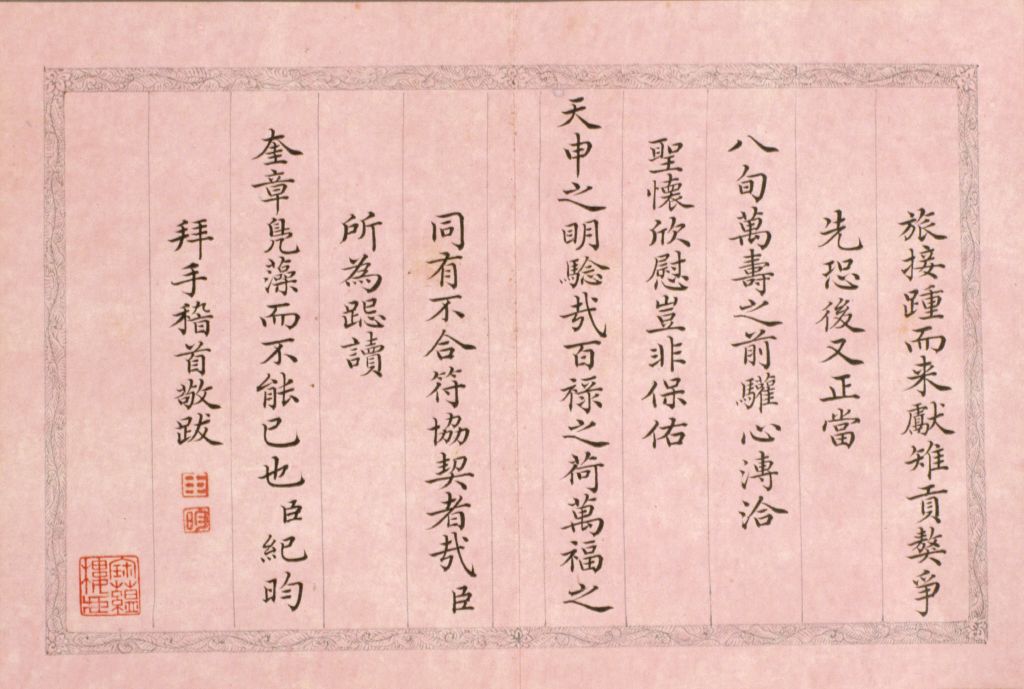 旅接踵而来獻雉貢獒爭
先恐後又正當
八旬萬壽之前驩心溥洽
聖懷欣慰豈非保佑
天申之明驗㢤百禄之荷萬福之
同有不合符協契者㢤臣
所為跽讀
奎章凫藻而不能已也臣紀昀
拜手稽首敬跋
臣
昀